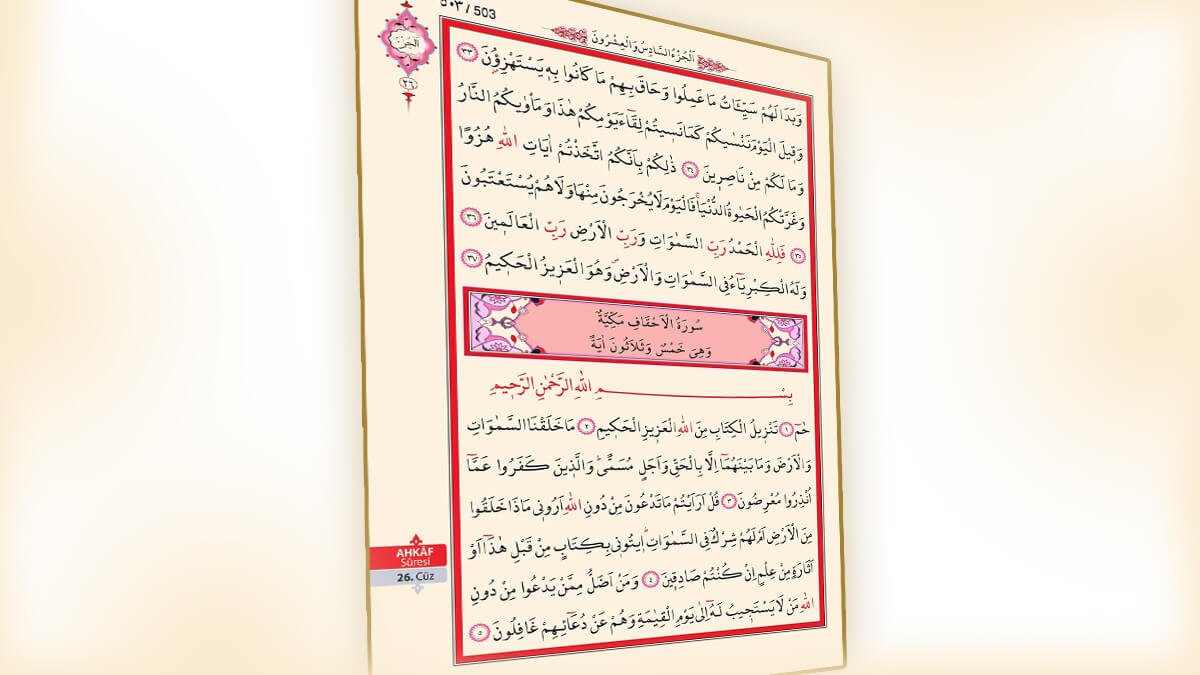 ٥٠٣ / 503
اَلْجُزْءُ السَّادِسُ وَالْعِشْرُونَ
٢٦
وَبَدَا لَهُمْ سَيِّـَٔاتُ مَا عَمِلُوا وَحَاقَ بِهِمْ مَا كَانُوا بِه۪ يَسْتَهْزِؤُ۫نَ ٣٣
وَق۪يلَ الْيَوْمَ نَنْسٰيكُمْ كَمَا نَس۪يتُمْ لِقَٓاءَ يَوْمِكُمْ هٰذَا وَمَأْوٰيكُمُ النَّارُ
وَمَا لَكُمْ مِنْ نَاصِر۪ينَ ٣٤ ذٰلِكُمْ بِاَنَّكُمُ اتَّخَذْتُمْ اٰيَاتِ اللّٰهِ هُزُوًا
وَغَرَّتْكُمُ الْحَيٰوةُ الدُّنْيَاۚ فَالْيَوْمَ لَا يُخْرَجُونَ مِنْهَا وَلَا هُمْ يُسْتَعْتَبُونَ
٣٥ فَلِلّٰهِ الْحَمْدُ رَبِّ السَّمٰوَاتِ وَرَبِّ الْاَرْضِ رَبِّ الْعَالَم۪ينَ ٣٦
وَلَهُ الْكِبْرِيَٓاءُ فِي السَّمٰوَاتِ وَالْاَرْضِۖ وَهُوَ الْعَز۪يزُ الْحَك۪يمُ ٣٧
سُورَةُ الْاَحْقَافِ مَكِّيَّةٌ
وَهِيَ خَمْسٌ وَثَلَاثُونَ اٰيَةً
بِسْمِ اللّٰهِ الرَّحْمٰنِ الرَّح۪يمِ
حٰمٓ ١ تَنْز۪يلُ الْكِتَابِ مِنَ اللّٰهِ الْعَز۪يزِ الْحَك۪يمِ ٢ مَا خَلَقْنَا السَّمٰوَاتِ
وَالْاَرْضَ وَمَا بَيْنَهُمَٓا اِلَّا بِالْحَقِّ وَاَجَلٍ مُسَمًّىۜ وَالَّذ۪ينَ كَفَرُوا عَمَّٓا
اُنْذِرُوا مُعْرِضُونَ ٣ قُلْ اَرَاَيْتُمْ مَا تَدْعُونَ مِنْ دُونِ اللّٰهِ اَرُون۪ي مَاذَا خَلَقُوا
مِنَ الْاَرْضِ اَمْ لَهُمْ شِرْكٌ فِي السَّمٰوَاتِۜ ا۪يتُون۪ي بِكِتَابٍ مِنْ قَبْلِ هٰذَٓا اَوْ
اَثَارَةٍ مِنْ عِلْمٍ اِنْ كُنْتُمْ صَادِق۪ينَ ٤ وَمَنْ اَضَلُّ مِمَّنْ يَدْعُوا مِنْ دُونِ
اللّٰهِ مَنْ لَا يَسْتَج۪يبُ لَهُٓ اِلٰى يَوْمِ الْقِيٰمَةِ وَهُمْ عَنْ دُعَٓائِهِمْ غَافِلُونَ ٥
AHKÂF
Sûresi
26. Cüz